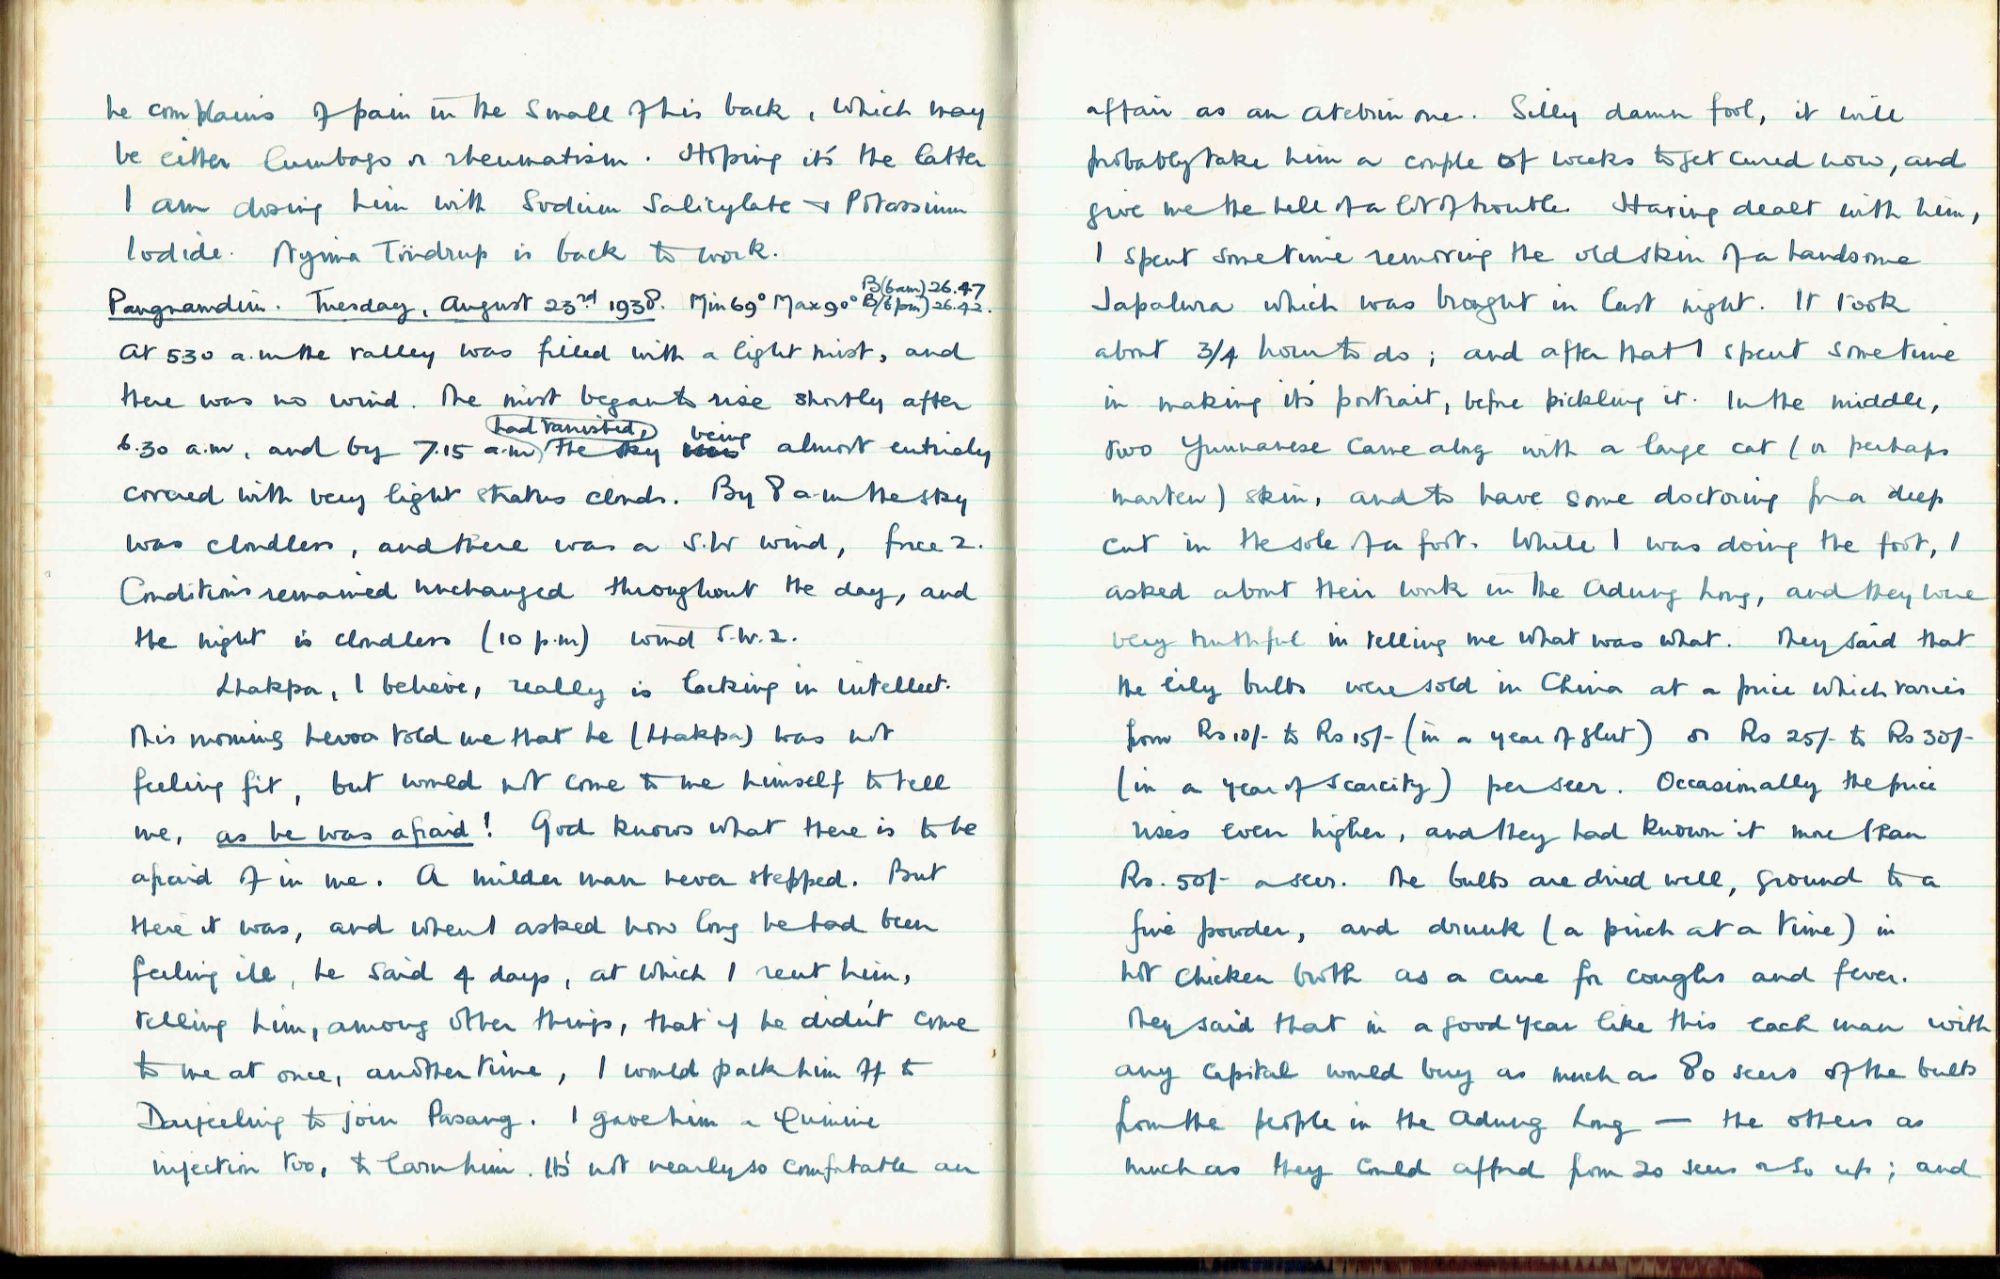 he complains of pain in the small of his back, which may
be either lumbago or rheumatism. Hoping it's the latter
I am dosing him with Sodium Salicylate & Potassium
Iodide. Nyima Töndrup is back to work.
Pangnamdim. Tuesday, August 23rd 1938. Min 69° Max 90° B(6am) 26.47 B(6pm) 26.42.
At 530 a.m the valley was filled with a light mist, and
there was no wind. The mist began to rise shortly after
6.30 a.m, and by 7.15 a.m had vanished, the sky was being almost entirely
covered with very light stratus clouds. By 8 a.m the sky
was cloudless, and there was a S.W wind, force 2.
Conditions remained unchanged throughout the day, and
the night is cloudless (10 p.m) wind S.W. 2.
Lhakpa, I believe, really is lacking in intellect.
This morning told me that he (Lhakpa) was not
feeling fit, but would not come to me himself to tell
me, as he was afraid! God knows what there is to be
afraid of in me. A milder man never stepped. But
there it was, and when I asked how long he had been
feeling ill, he said 4 days, at which I rent him,
telling him, among other things, that if he didn't come
to me at once, another time, I would pack him off to
Darjeeling to join Pasang. I gave him a Quinine
injection too, to larn him. It's not nearly so comfortable an
affair as an Atebrin one. Silly damn fool, it will
probably take him a couple of weeks to get cured now, and
give me the hell of a lot of trouble. Having dealt with him,
I spent sometime removing the old skin of a handsome
Japalura which was brought in last night. It took
about 3/4 hour to do; and after that I spent sometime
in making it's portrait, before pickling it. In the middle,
two Yunnanese came along with a large cat (or perhaps
marten) skin, and to have some doctoring for a deep
cut in the sole of a foot. While I was doing the foot, I
asked about their work in the Adung Long, and they were
very truthful in telling me what was what. They said that
the lily bulbs were sold in China at a price which varies
from Rs 10/- to Rs 15/- (in a year of glut) or Rs 25/- to Rs 30/-
(in a year of scarcity) per seer. Occasionally the price
rises even higher, and they had known it more than
Rs. 50/- a seer. The bulbs are dried well, ground to a
fine powder, and drunk (a pinch at a time) in
hot chicken broth as a cure for coughs and fever.
They said that in a good year like this each man with
any capital would buy as much as 80 seers of the bulbs
from the people in the Adung Long — the others as
much as they could afford from 20 seers or so up; and